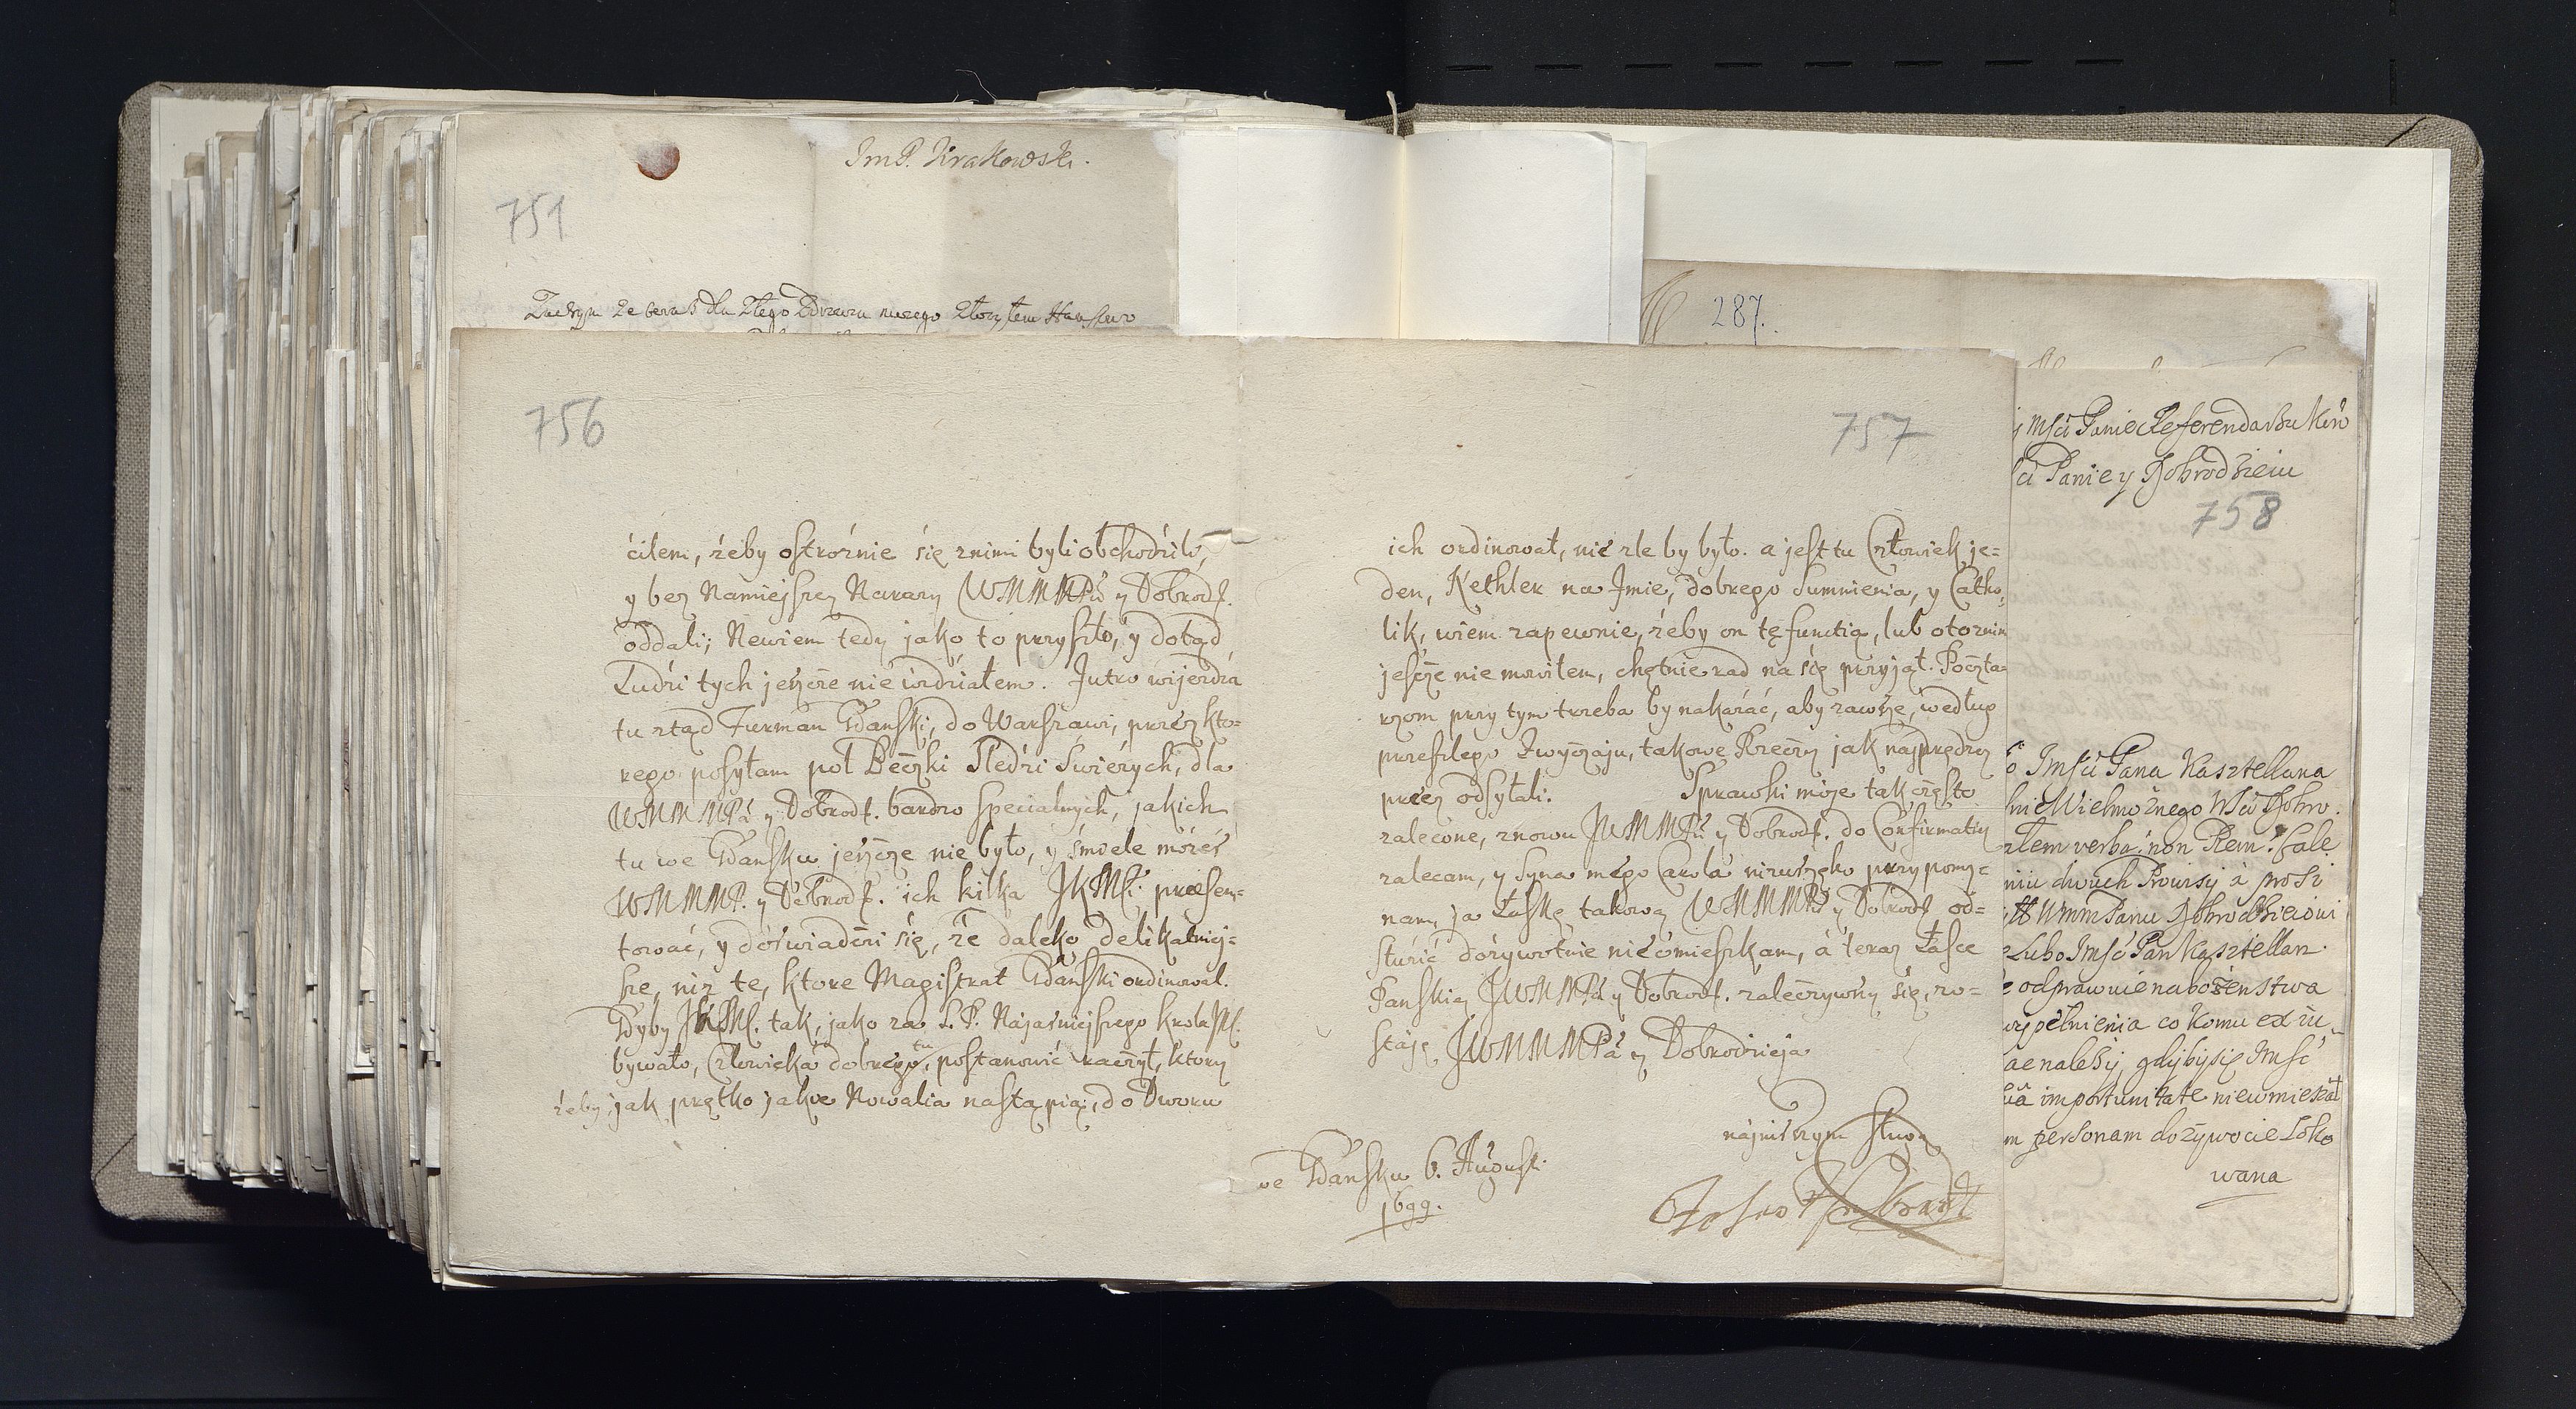 Im P. Krakowski.
751
Zadzyn Ze teraz dla Złego Zdrowia mego Złozyłem
756
ćiłem, żeby ostrożnie się z nimi byli obchodzili,
y bez Namiejszey Narazy WMMMPu y Dobrodz.
oddali; Newiem tedy jako to przyszło, y dotąd
Ludzi tych jeszcze nie widziałem. Jutro wijerdza
tu ztąd Furman Gdanski, do Warszawi, przez kto=
rego posyłam poł Beczki Sledzi Swieżych, dla
WMMMPa y Dobrodz. bardzo specialnych, jakich
tu we Gdansku jeszcze nie było, y smiele możes
WMMMP. y Dobrodz. ich kilka JKMSci præsen=
tować, y doświadczi się, że daleko delikatniej=
sze, niz te, ktore Magistrat Gdanski ordinowal.
Gdyby JKMSc. tak, jako za S.P. Najasniejszego Krola JMSc.
bywało, Człowieka dobrego tu postanowić raczył, ktory
żeby, jak prętko jakie Nowalia nastąpią, do Dworu
757
ich ordinował, nie zle by było. a jest tu Człowiek je=
den, Kethler na Imie, dobrego Sumnienia, y Catho,
lik, wiem zapewnie, żeby on tę functią, lub o to znim
jescze nie mowiłem, chętnie rad na się przyjął. Poczta=
rzom przy tym trzeba by nakazáć, aby zawsze, według
przeszlego Zwyczaju, takowe Rzeczy jak najprędzey
przez odsyłali. Sprawki moje tak często
zalecone, znowu JWMMMPu y Dobrodz. do Confirmatiy
zalecam, y Syna mego Carola nizuszko przypomi=
nam, ja Łaskę takową WMMMPu y Dobrodz od=
służić dożywotnie nie omieszkam, á teraz Łasce
Panskiey JWMMMPa y Dobrodz. zaleczywszy się, zo=
staję JWMMMPa y Dobrodzieja
najniższym Sługą
we Gdansku 6. August.
1699.
287.
Mści Panie Referendarzu Kor
ci Panie y Dobrodzieiu
758
o Imsci Pana Kasztellana
lnie Wielmożnego Wści Dobro.
ztem verba: non Rem.
niu dwuch Prowisy à prosi
WmmPanu Dobrodzieiowi
Lubo Imsć Pan Kasztellan
e odprawuie nabożenstwa
wypełnienia co komu ex iu
ae należy, gdyby się Imsć
importunitate niewmieszał
m personam dozywocie Loko
wana